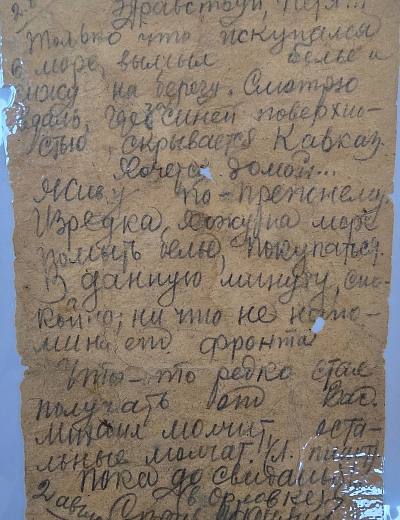 Здравствуй, Петя!..
Только что искупался
в море, вымыл белье и
сижу на берегу. Смотрю
вдаль, где в синей поверхно-
стью скрывается Кавказ.
Хочется домой...
Живу по-прежнему.
Изредка, хожу на море
помыть белье, покупаться.
В данную минуту, спо-
койно; ни что не напо-
минает фронта
Что-то редко стал
получать от Вас.
Михаил молчит, оста-
льные молчат.
Пока до свидания
2 авг.